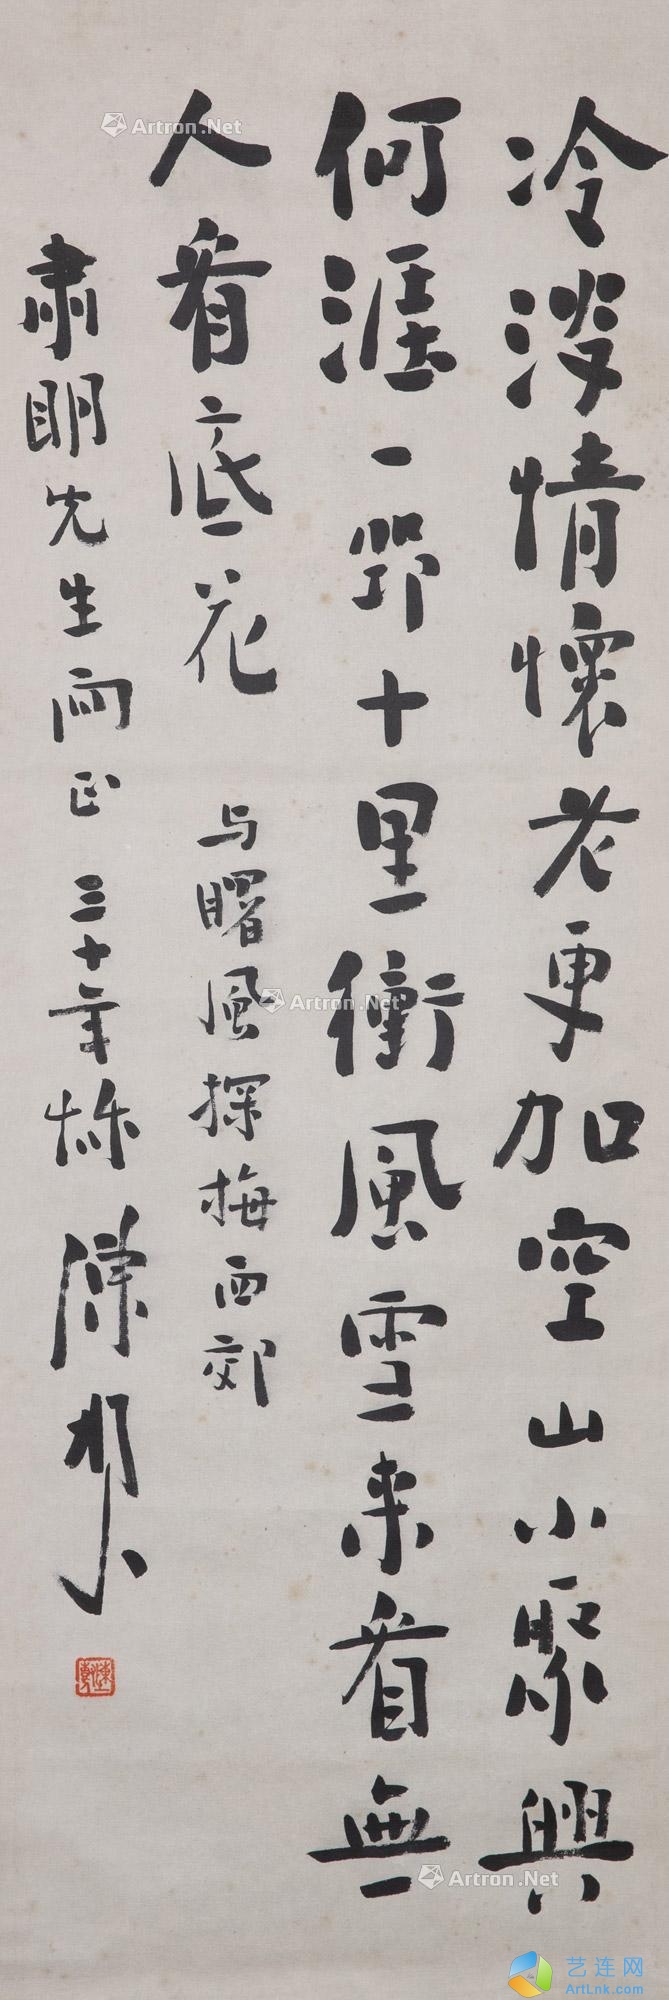 冷淡情懷老更加空山小聚興
何涯一節十里衝風雪来看無
人看底花
与曙風探梅西郊
肃明先生兩正 三十年
Artron.Net
Artron.Net
Artron.Net
艺连网
ArtLnk.com